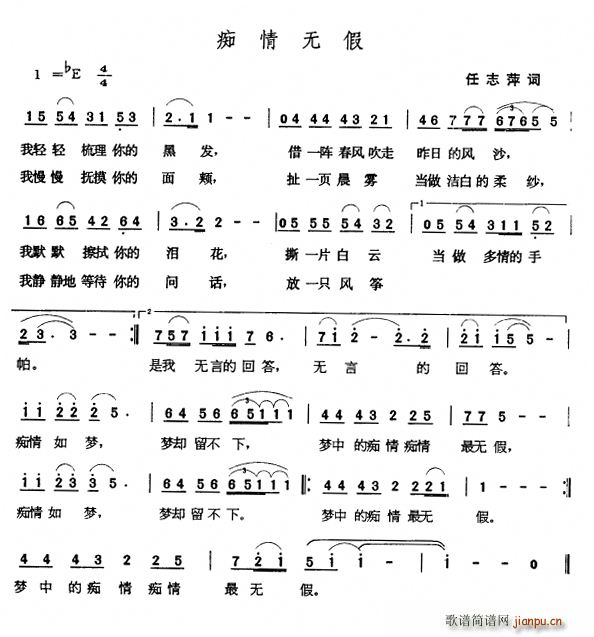 痴情无假
1=♭E 4/4 任志萍词
15 54 31 53 | 2·1 1 - - | 04 44 43 21 | 46 777 6765 5 |
我轻轻 梳理你的 黑发， 借一阵春风吹走 昨日的风沙，
我慢慢 抚摸你的 面颊， 扯一页晨雾 当做洁白的柔纱，
16 65 42 64 | 3·2 2 - - | 05 55 54 32 | 1 05 54 311 52 |
我默默 擦拭你的 泪花， 撕一片白云 当做多情的手
我静静地等待你的 问话， 放一只风筝
23 3· - - :| 2 757 111 76· | 71 2 - 2·2 | 21 155 - - |
帕。 是我无言的回答， 无言的回答。
11 22 25· | 64 56 522 65111 | 44 43 225 | 775 - - |
痴情如梦， 梦却留不下， 梦中的痴情痴情 最无假，
11 23 35· | 64 56 522 65111 |: 44 43 222 221 | 1 - - - :|
痴情如梦， 梦却留不下。 梦中的痴情最无假。
4 4 4 3 2 2 5 | 7 21 51 - | 1 - - 0 ‖
梦中的痴情痴情最无假。
歌谱简谱网
jianpu.cn